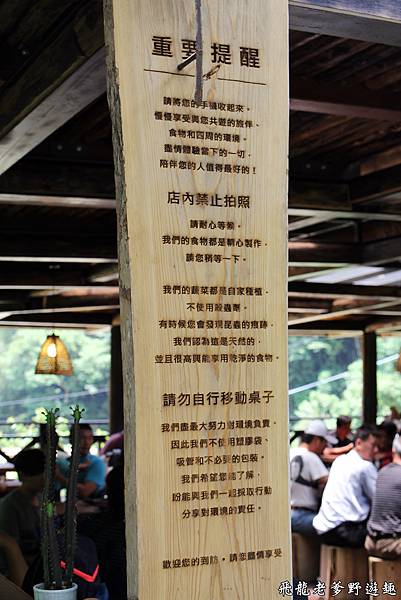 重要提醒
請將您的手機收起來。
慢慢享受與您共遊的旅伴、
食物和四周的環境。
盡情體驗當下的一切，
陪伴您的人值得最好的！
店內禁止拍照
請耐心等候。
我們的食物都是精心製作，
請您稍等一下。
我們的蔬菜都是自家種植，
不使用殺蟲劑。
有時候您會發現昆蟲的痕跡，
我們認為這是天然的，
並且很高興能享用乾淨的食物。
請勿自行移動桌子
我們盡最大努力對環境負責，
因此我們不使用塑膠袋、
吸管和不必要的包裝。
我們希望您能了解，
盼能與我們一起採取行動
分享對環境的責任。
歡迎您的到訪，請您盡情享受
飛龍老爹野遊趣